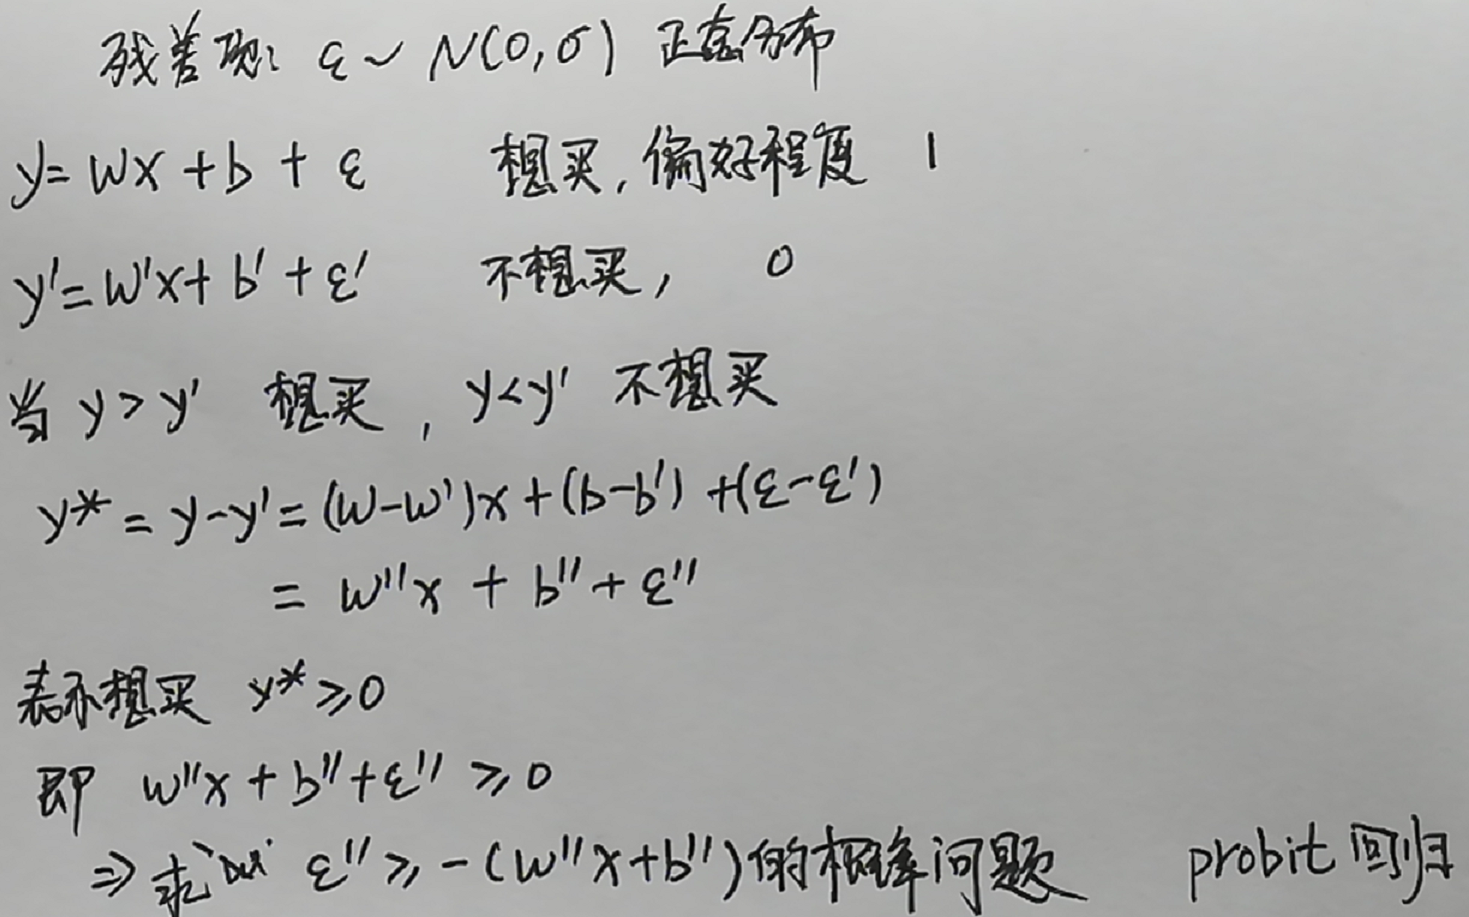 残差项: ε ~ N(0, σ) 正态分布
y = wx + b + ε 想买, 偏好程度 1
y' = w'x + b' + ε' 不想买, 0
当 y > y' 想买, y < y' 不想买
y* = y - y' = (w - w')x + (b - b') + (ε - ε')
= w''x + b'' + ε''
表示想买 y* ≥ 0
即 w''x + b'' + ε'' ≥ 0
⇒ 求 ε'' ≥ -(w''x + b'') 的概率问题 probit 回归